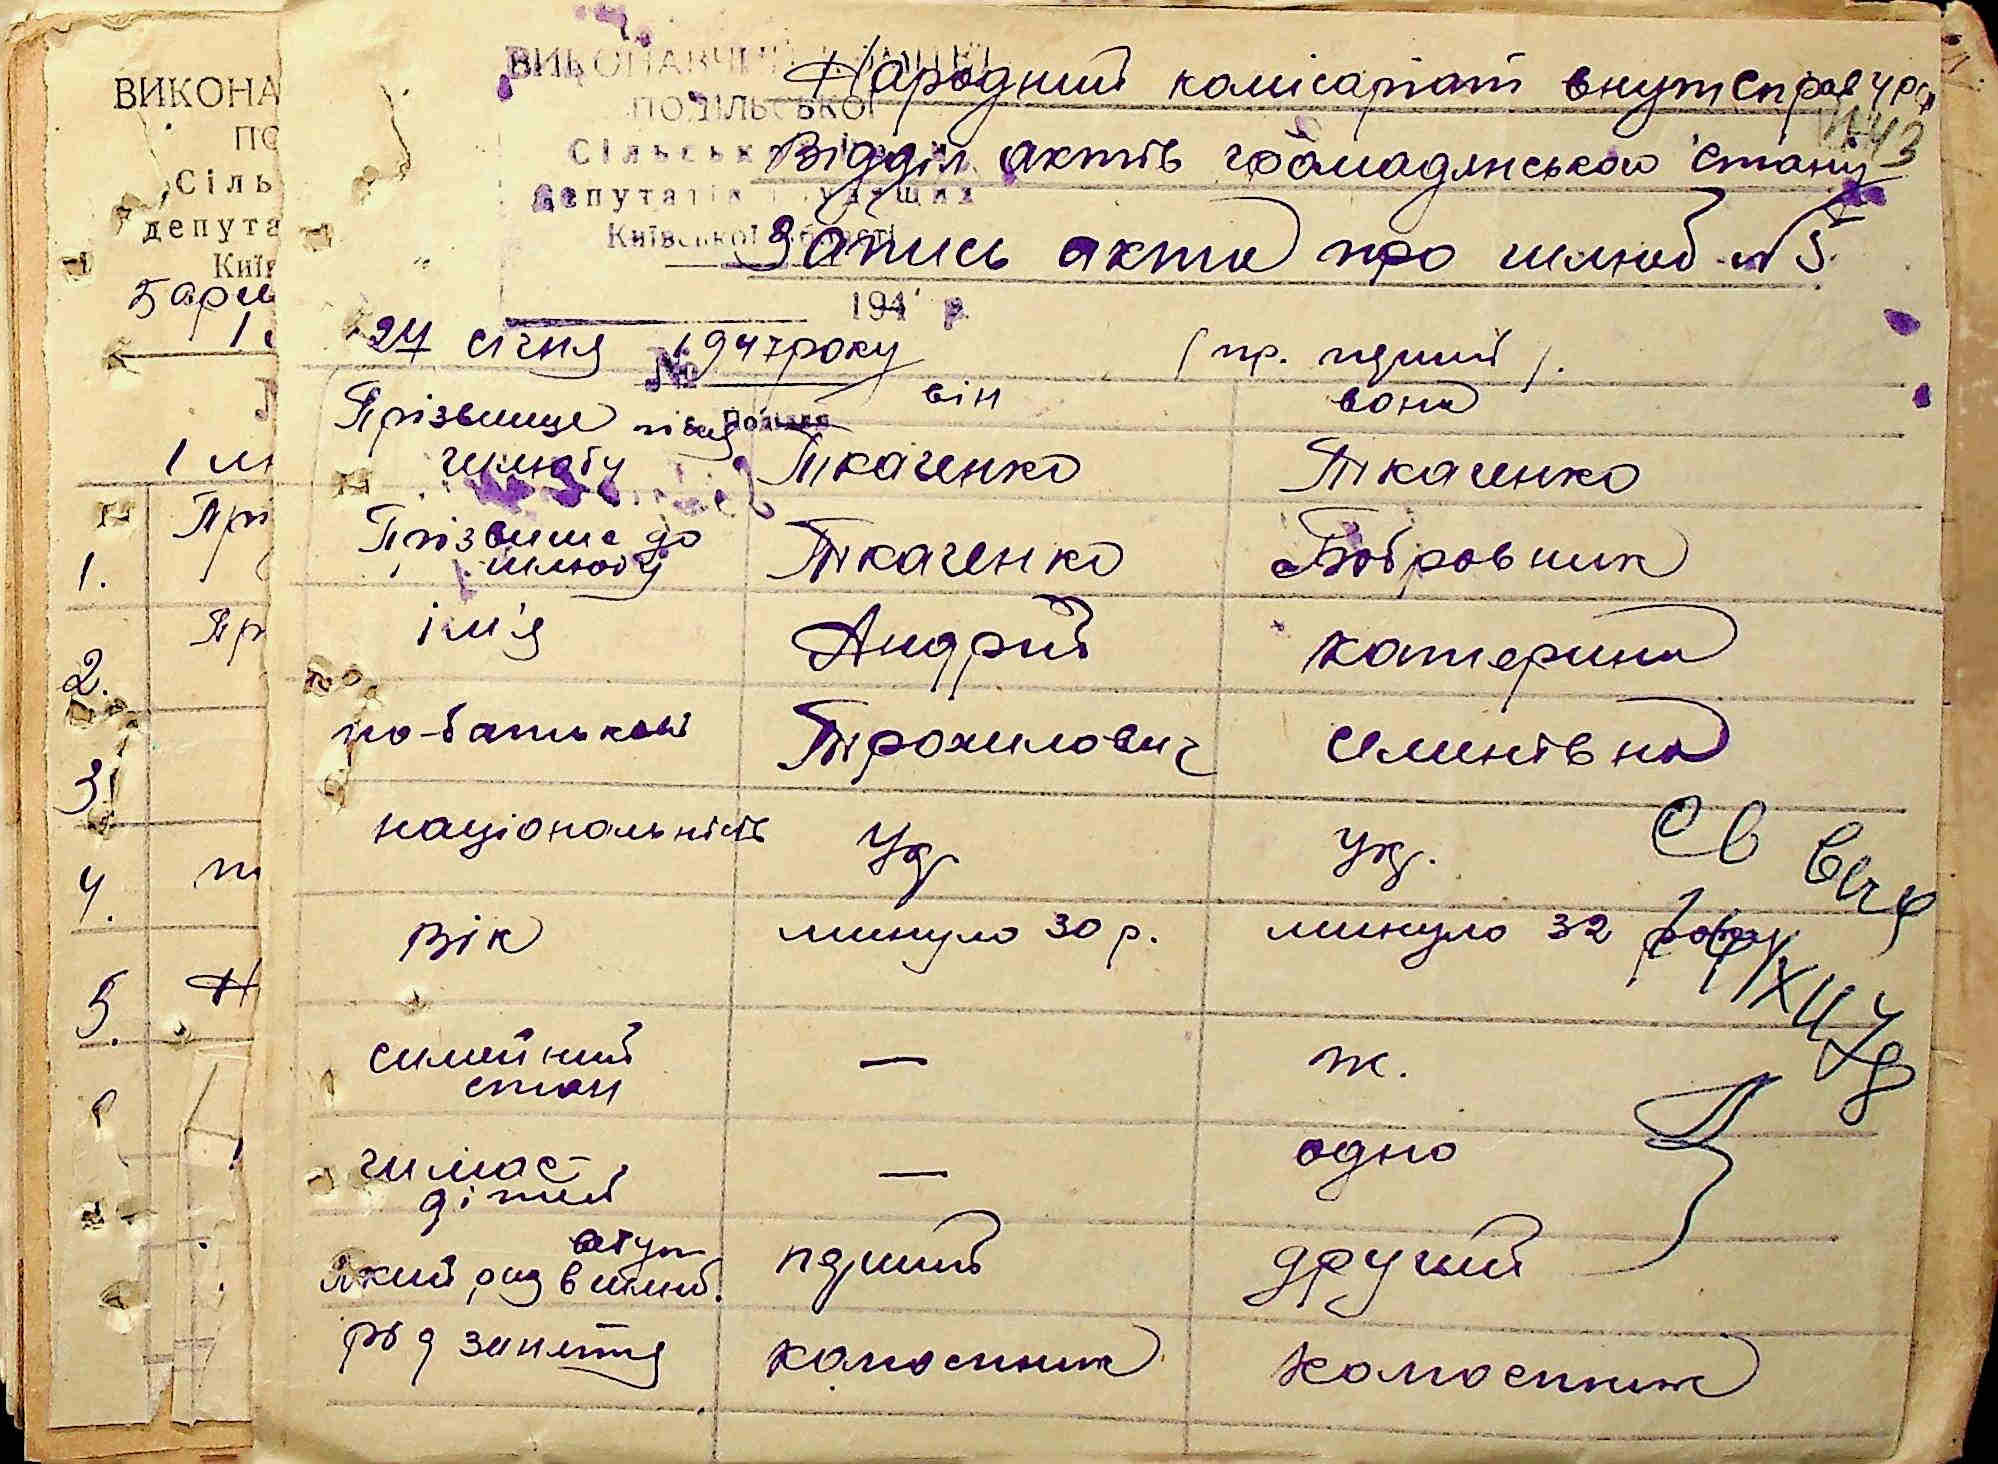 ВИКОНА
ПО
Сіль
депута
Київ
1 лю
1.
2.
3.
4.
5.
ВИКОНАВЧИЙ КОМІТЕТ
ПОДІЛЬСЬКОЇ
Сільської Ради
Депутатів Трудящих
Київської Області
194 р.
№
Народний комісаріат внутсправ УРСР
№43
Відділ актів громадянського стану
Запись акта про шлюб №5
24 січня 1947 року (пр. перший).
він вона
Прізвище після шлюбу Ткаченко Ткаченко
Прізвище до шлюбу Ткаченко Бобровник
ім'я Андрій Катерина
по-батькові Трохимович Семинівна
національність Укр Укр.
Вік минуло 30 р. минуло 32 року
симейний стан — ж.
чи має дітей — одно
який раз вступ в шлюб. перший другий
род заняття колгоспник колгоспник